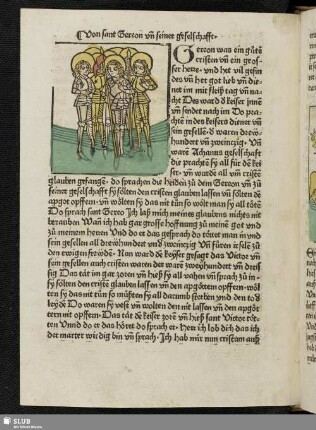 Von sant Gereon vn̄ seiner geselschafft
Gereon was ein gůter
cristen vn̄ ein gros-
ser herre · vnd het vil gesin
des vn̄ het got lieb vn̄ die-
net im mit fleiß tag vn̄ na-
cht Des ward d̄ keiser innē
vn̄ sendet nach im Do prach-
ten in des keisers diener vn̄
sein gesellē · d̄ waren drew-
hundert vn̄ zweinczig · Vn̄
waren geselschafft
die prachtē sy all für dē kei-
ser · vn̄ wurdē all vm̄ cristē
glauben gefangē · do sprachen die heiden zů dem Gereon vn̄ zů
seiner geselschafft sy sölten den cristē glauben lassen vn̄ sölten dē
abgot opffern · vn̄ wölten sy das nit tůn so wölt man sy all tötē
Do sprach sant Gereo Ich laß mich meines glaubens nichts nit
berauben Wan ich hab gar grosse hoffnung zů meinē got vnd
zů meinem herren Vnd do er das gesprach do tötet man in vnd
sein gesellen all drewhundert vnd zweinczig Vn̄ fůren ir selē zů
den ewigen frewdē · Nun ward dē keyser gesagt das Victor vn̄
sein gesellen auch cristen waren der ware zweyhundert vn̄ dreys-
sig Das tät im gar zoren vn̄ hieß sy all vahen vn̄ sprach zů in ·
sy sölten den cristē glauben lassen vn̄ den apgöttern opffern · wöl-
ten sy das nit tůn so můsten sy all darumb sterben vnd den tod
Do waren sy vest vn̄ wolten den nit lassen vn̄ den apgöt-
tern nit opffern · Das tät dē keiser zorē vn̄ hieß sant Victor töt-
ten Vnnd do er das höret do sprach er · Herr ich lob dich das ich
der marter wirdig bin vn̄ sprach · Ich hab mir nun cristum auß